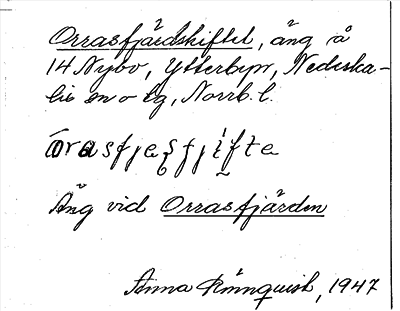 Orrasfjärdskiftet, äng å
14 Nybo, Ytterbyn, Nederka-
lix sn o tg, Norrb. l.
Äng vid Orrasfjärden
Anna Rönnquist, 1947